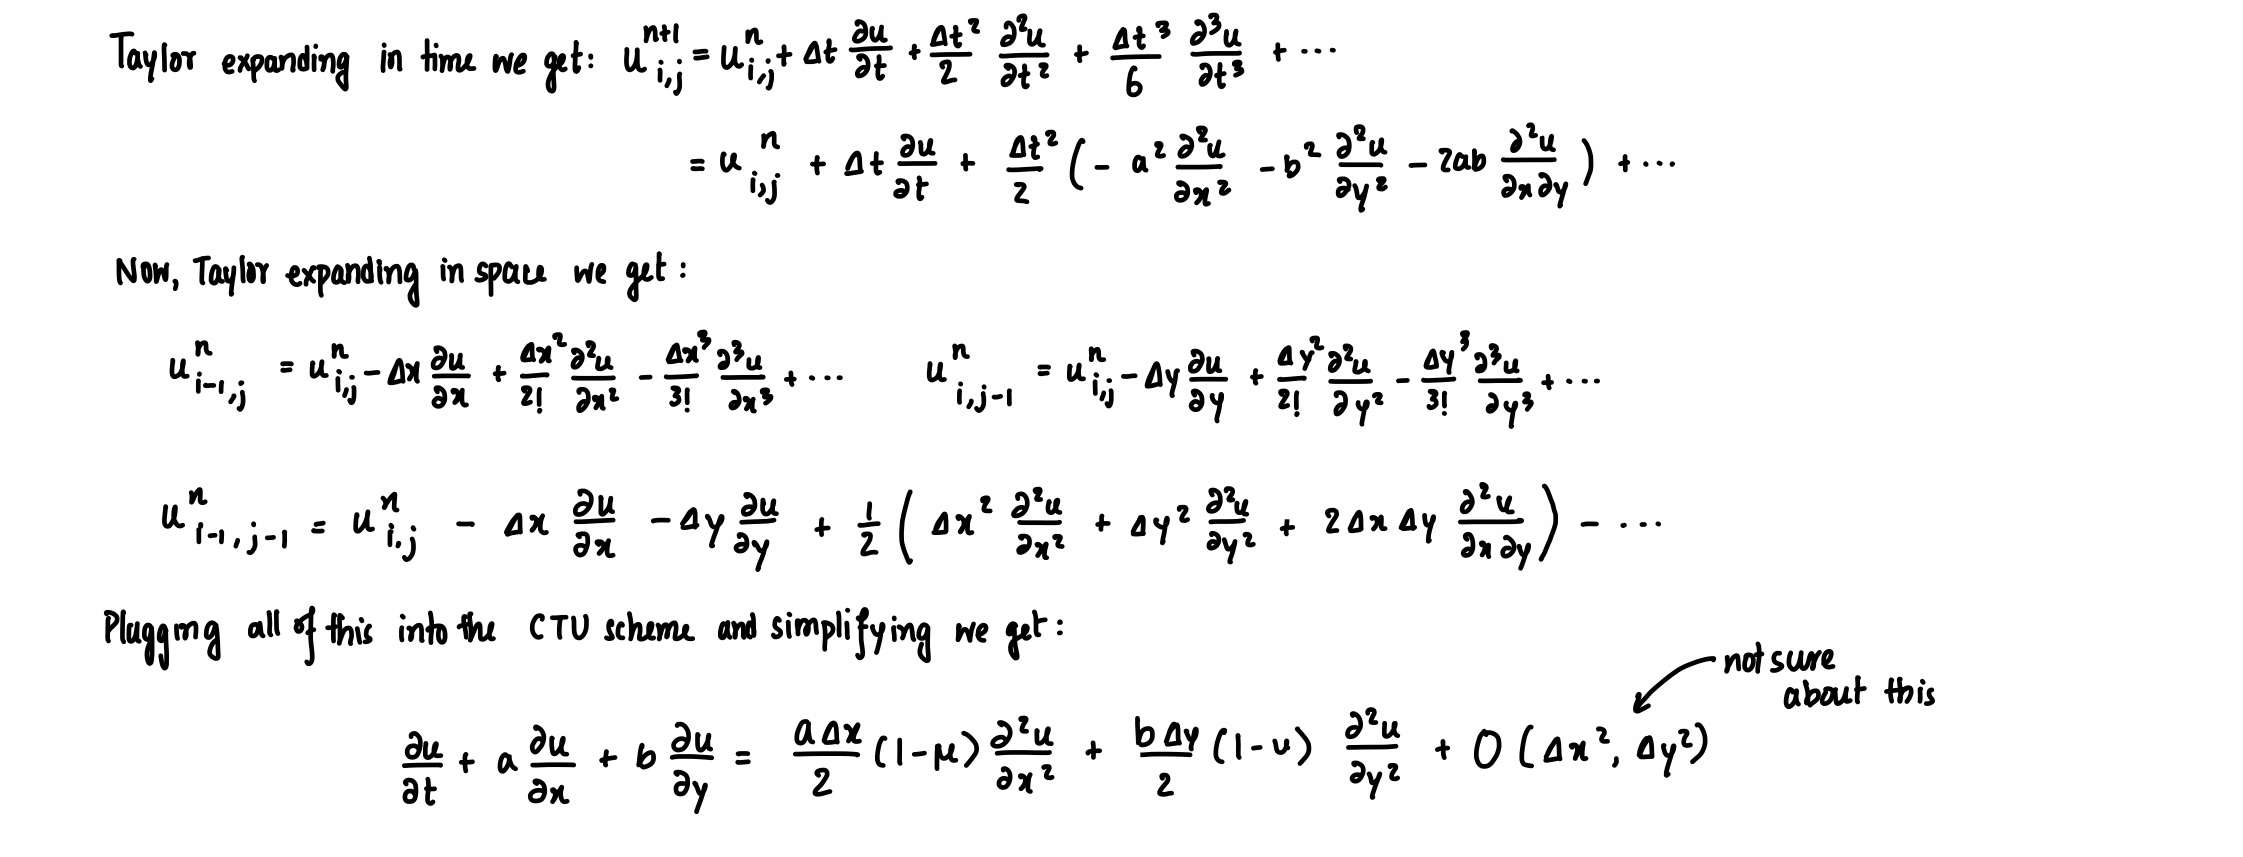 Taylor expanding in time we get: u^{n+1}_{i,j} = u^n_{i,j} + Δt ∂u/∂t + Δt²/2 ∂²u/∂t² + Δt³/6 ∂³u/∂t³ + ⋯
= u^n_{i,j} + Δt ∂u/∂t + Δt²/2 (− a² ∂²u/∂x² − b² ∂²u/∂y² − 2ab ∂²u/∂x∂y) + ⋯
Now, Taylor expanding in space we get:
u^n_{i-1,j} = u^n_{i,j} − Δx ∂u/∂x + Δx²/2! ∂²u/∂x² − Δx³/3! ∂³u/∂x³ + ⋯ u^n_{i,j-1} = u^n_{i,j} − Δy ∂u/∂y + Δy²/2! ∂²u/∂y² − Δy³/3! ∂³u/∂y³ + ⋯
u^n_{i-1,j-1} = u^n_{i,j} − Δx ∂u/∂x − Δy ∂u/∂y + 1/2 (Δx² ∂²u/∂x² + Δy² ∂²u/∂y² + 2ΔxΔy ∂²u/∂x∂y) − ⋯
Plugging all of this into the CTU scheme and simplifying we get:
not sure
about this
∂u/∂t + a ∂u/∂x + b ∂u/∂y = aΔx/2 (1−μ) ∂²u/∂x² + bΔy/2 (1−ν) ∂²u/∂y² + O(Δx², Δy²)